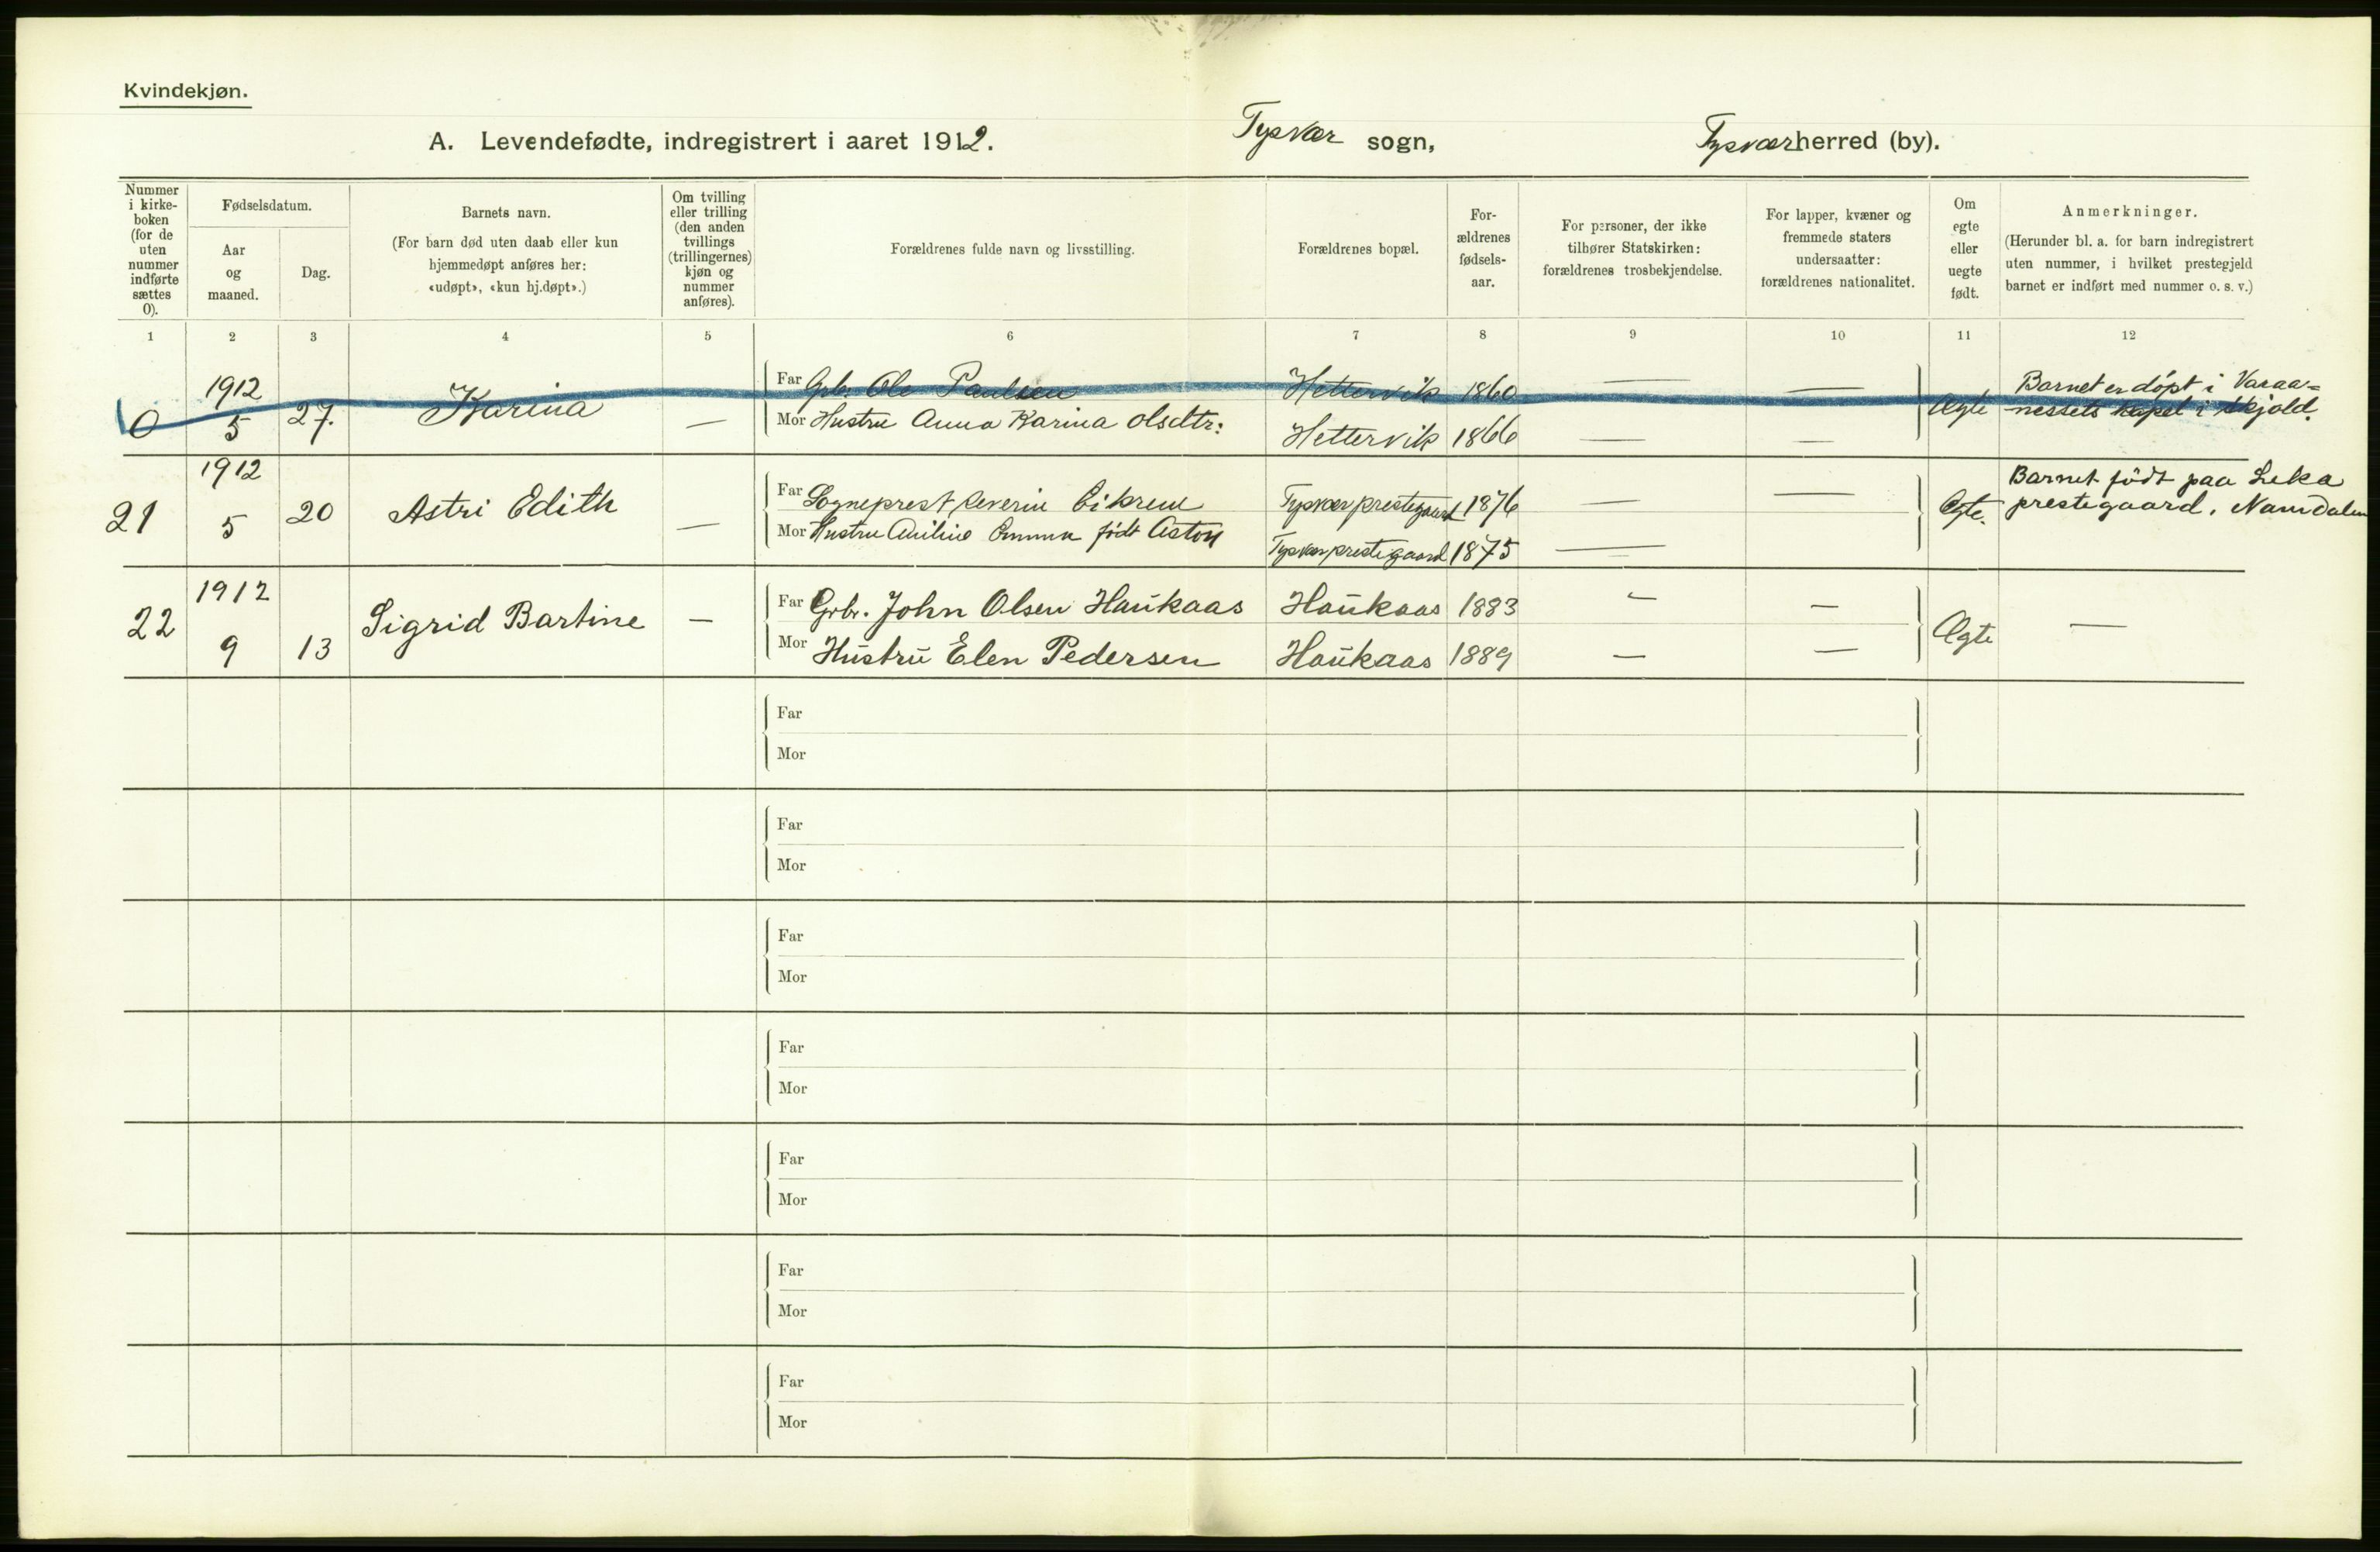 Kvindekjøn.
A. Levendefødte, indregistrert i aaret 1912. Tysvær sogn, Tysvær herred (by).
Nummer i kirke-boken (for de uten nummer indførte sættes 0).
Fødselsdatum.
Aar og maaned.
Dag.
Barnets navn.
(For barn død uten daab eller kun hjemmedøpt anføres her: «udøpt», «kun hj.døpt».)
Om tvilling eller trilling (den anden tvillings (trillingernes) kjøn og nummer anføres).
Forældrenes fulde navn og livsstilling.
Forældrenes bopæl.
For-ældrenes fødsels-aar.
For personer, der ikke tilhører Statskirken: forældrenes trosbekjendelse.
For lapper, kvæner og fremmede staters undersaatter: forældrenes nationalitet.
Om egte eller uegte født.
Anmerkninger.
(Herunder bl. a. for barn indregistrert uten nummer, i hvilket prestegjeld barnet er indført med nummer o. s. v.)
1 2 3 4 5 6 7 8 9 10 11 12
0 1912 5 27. Karina —
Far Grbr. Ole Paulsen Hettervik 1860 — —
Mor Hustru Anna Karina Olsdtr: Hettervik 1866 — —
Ægte
Barnet er döpt i Varaa=
nessets kapel i Skjold.
21 1912 5 20 Astri Edith —
Far Sogneprest Severin Eikrem Tysvær prestegaard 1876 — —
Mor Hustru Emma født Aston Tysvær prestegaard 1875 —
Ægte.
Barnet födt paa Leka
prestegaard, Namdalen
22 1912 9 13 Sigrid Bartine —
Far Grbr. John Olsen Haukaas Haukaas 1883 — —
Mor Hustru Elen Pedersen Haukaas 1889 — —
Ægte —
Far
Mor
Far
Mor
Far
Mor
Far
Mor
Far
Mor
Far
Mor
Far
Mor